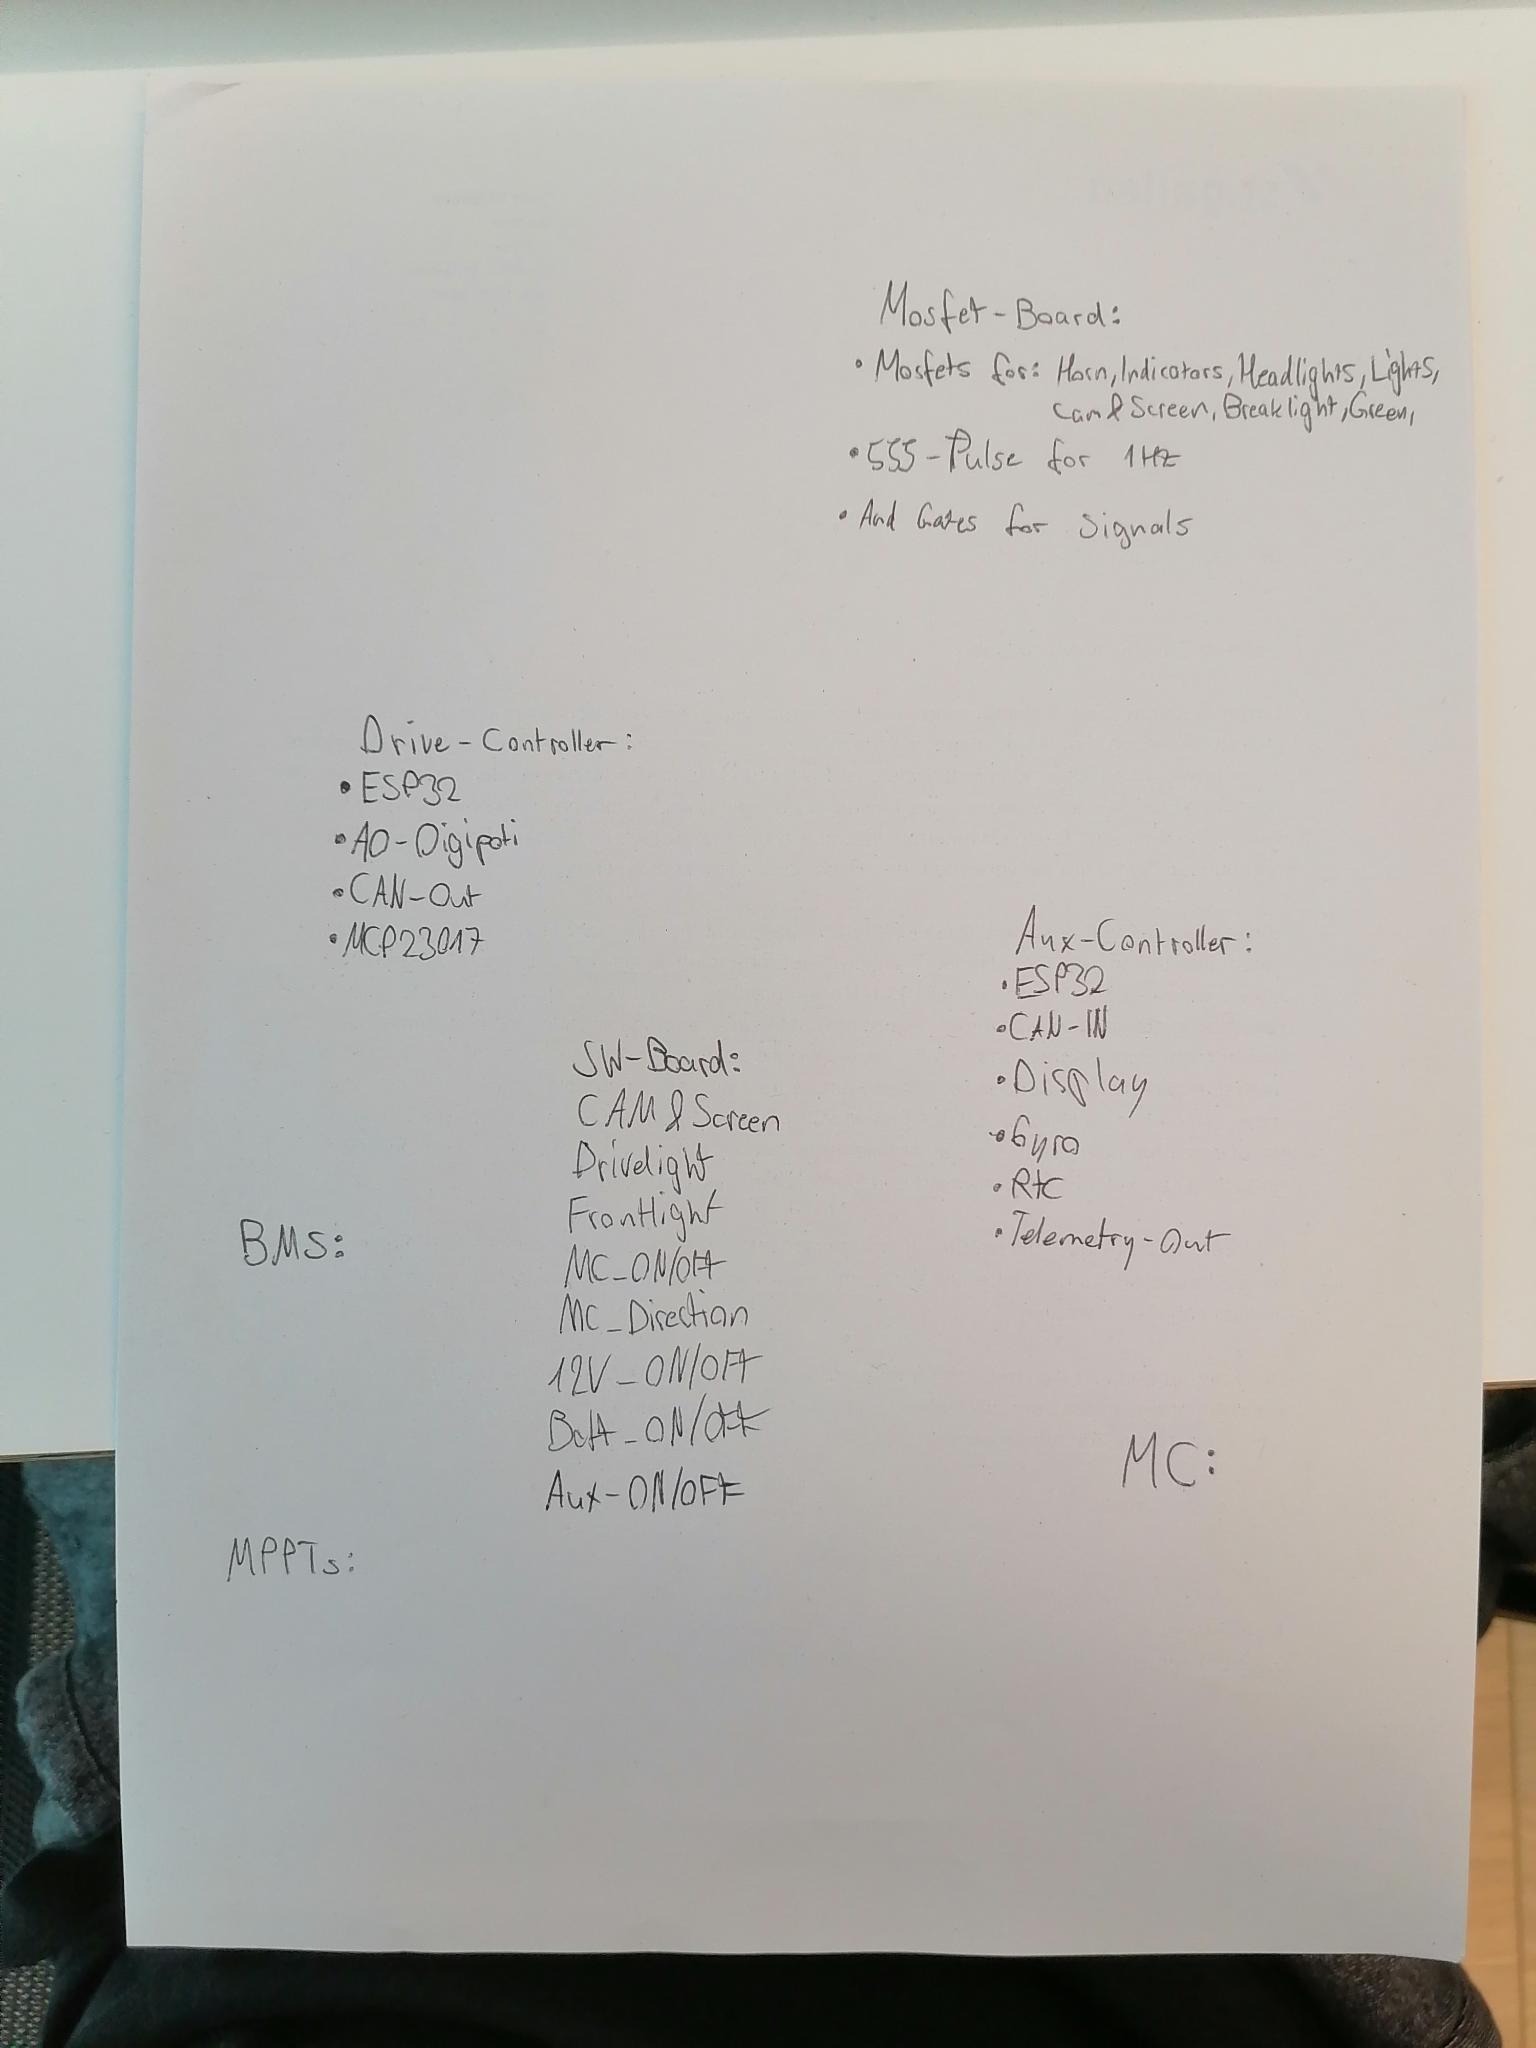 Mosfet-Board:
• Mosfets for: Horn, Indicators, Headlights, Lights,
Cam & Screen, Breaklight, Green,
• 555-Pulse for 1Hz
• And Gates for Signals
Drive-Controller:
• ESP32
• AD-Digipoti
• CAN-Out
• MCP23017
Aux-Controller:
• ESP32
• CAN-IN
• Display
• Gyro
• RtC
• Telemetry-Out
SW-Board:
CAM & Screen
Drivelight
Frontlight
MC_ON/OFF
MC_Direction
12V_ON/OFF
Batt_ON/OFF
Aux-ON/OFF
BMS:
MC:
MPPTs: